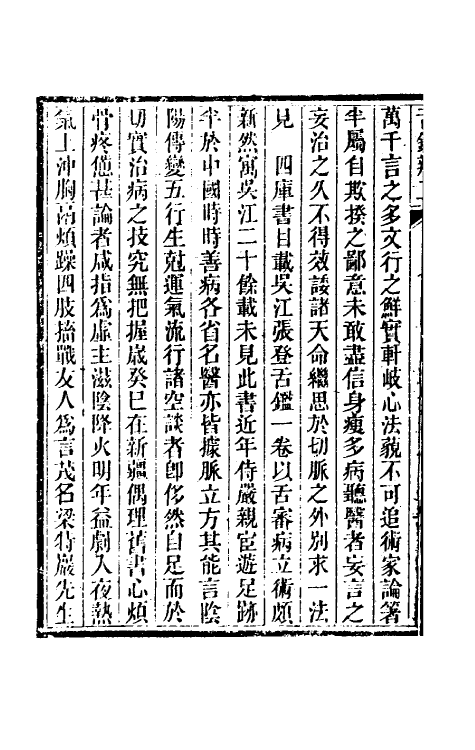 萬千言之多文行之鮮實軒岐心法藐不可追術家論著
半屬自欺揆之鄙意未敢盡信身瘦多病聽醫者妄言之
妄治之久不得效諉諸天命繼思於切脈之外別求一法
見　四庫書目載吳江張登舌鑑一卷以舌審病立術頗
新然寓吳江二十餘載未見此書近年侍嚴親宦遊足跡
半於中國時時善病各省名醫亦皆據脈立方其能言陰
陽傳變五行生尅運氣流行諸空談者卽侈然自足而於
切實治病之技究無把握歲癸巳在新疆偶理舊書心煩
骨疼憊甚論者咸指爲虛主滋陰降火明年益劇入夜熱
氣上沖胸鬲煩躁四肢搐戰友人爲言茂名梁特嚴先生